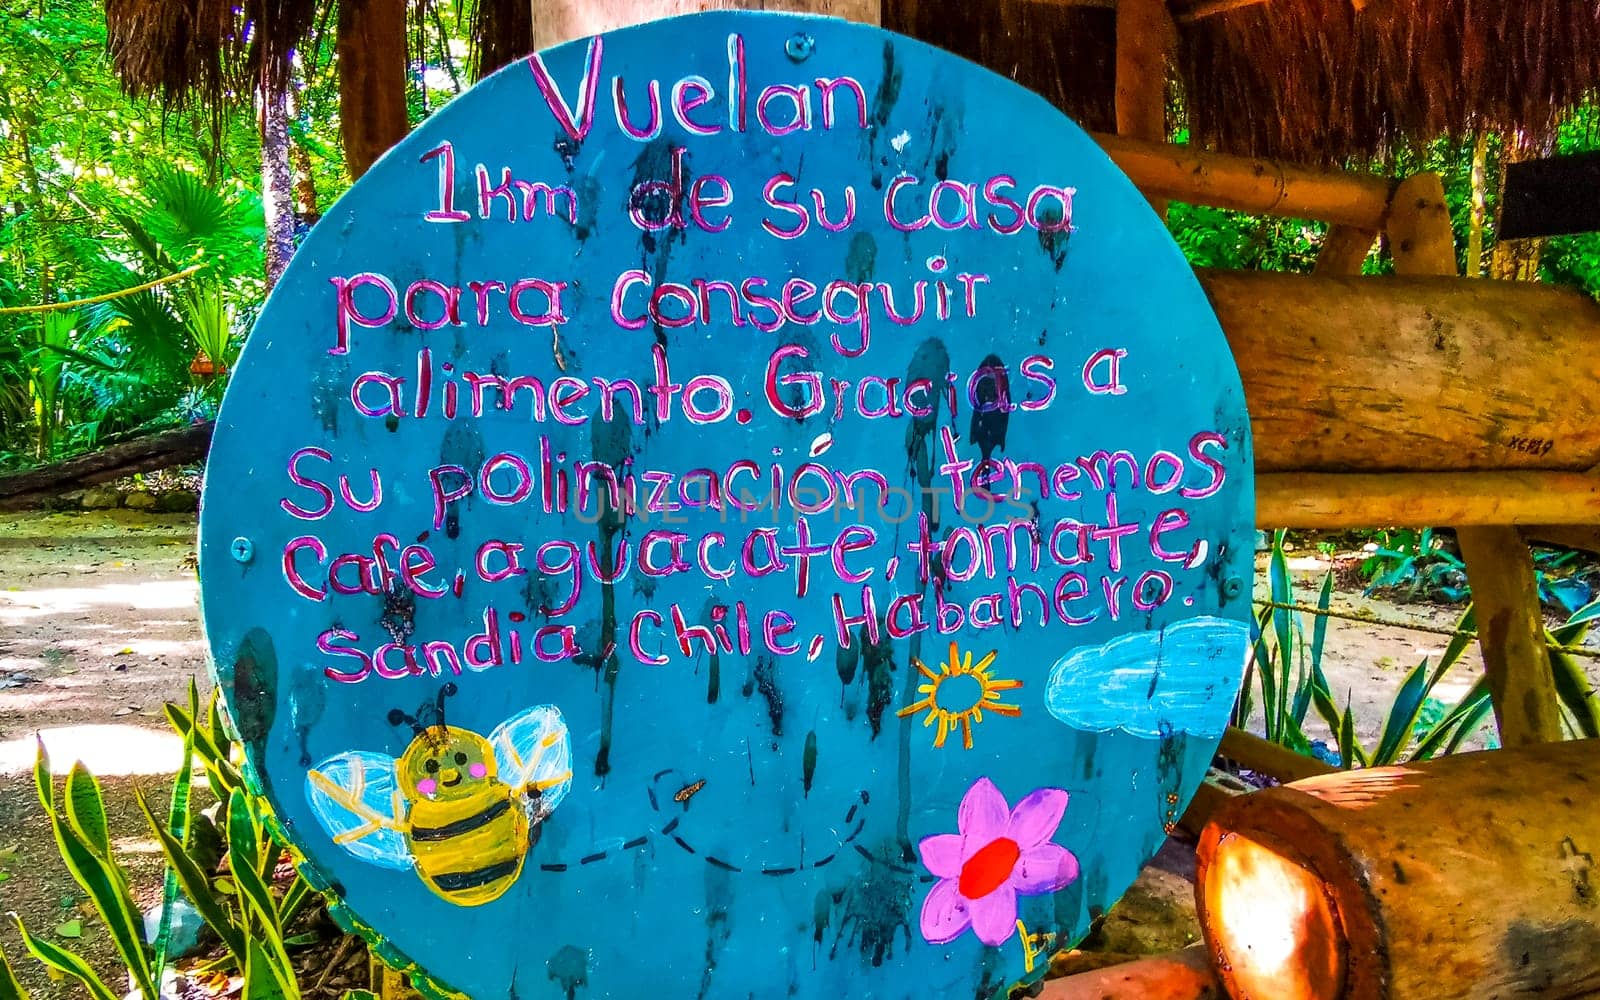 Vuelan
1km de su casa
para conseguir
alimento. Gracias a
Su polinización tenemos
Café, aguacate, tomate,
Sandia, Chile, Habanero.
UNLTIMPHOTOS
XCP19